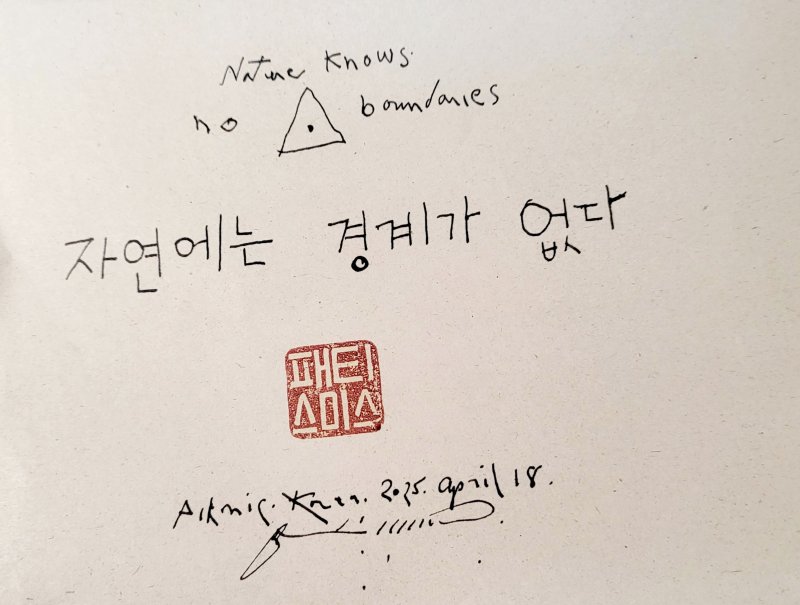 Nature Knows.
no boundaries
자연에는 경계가 없다
패티
스미스
Piknic. Korea. 2025. april 18.